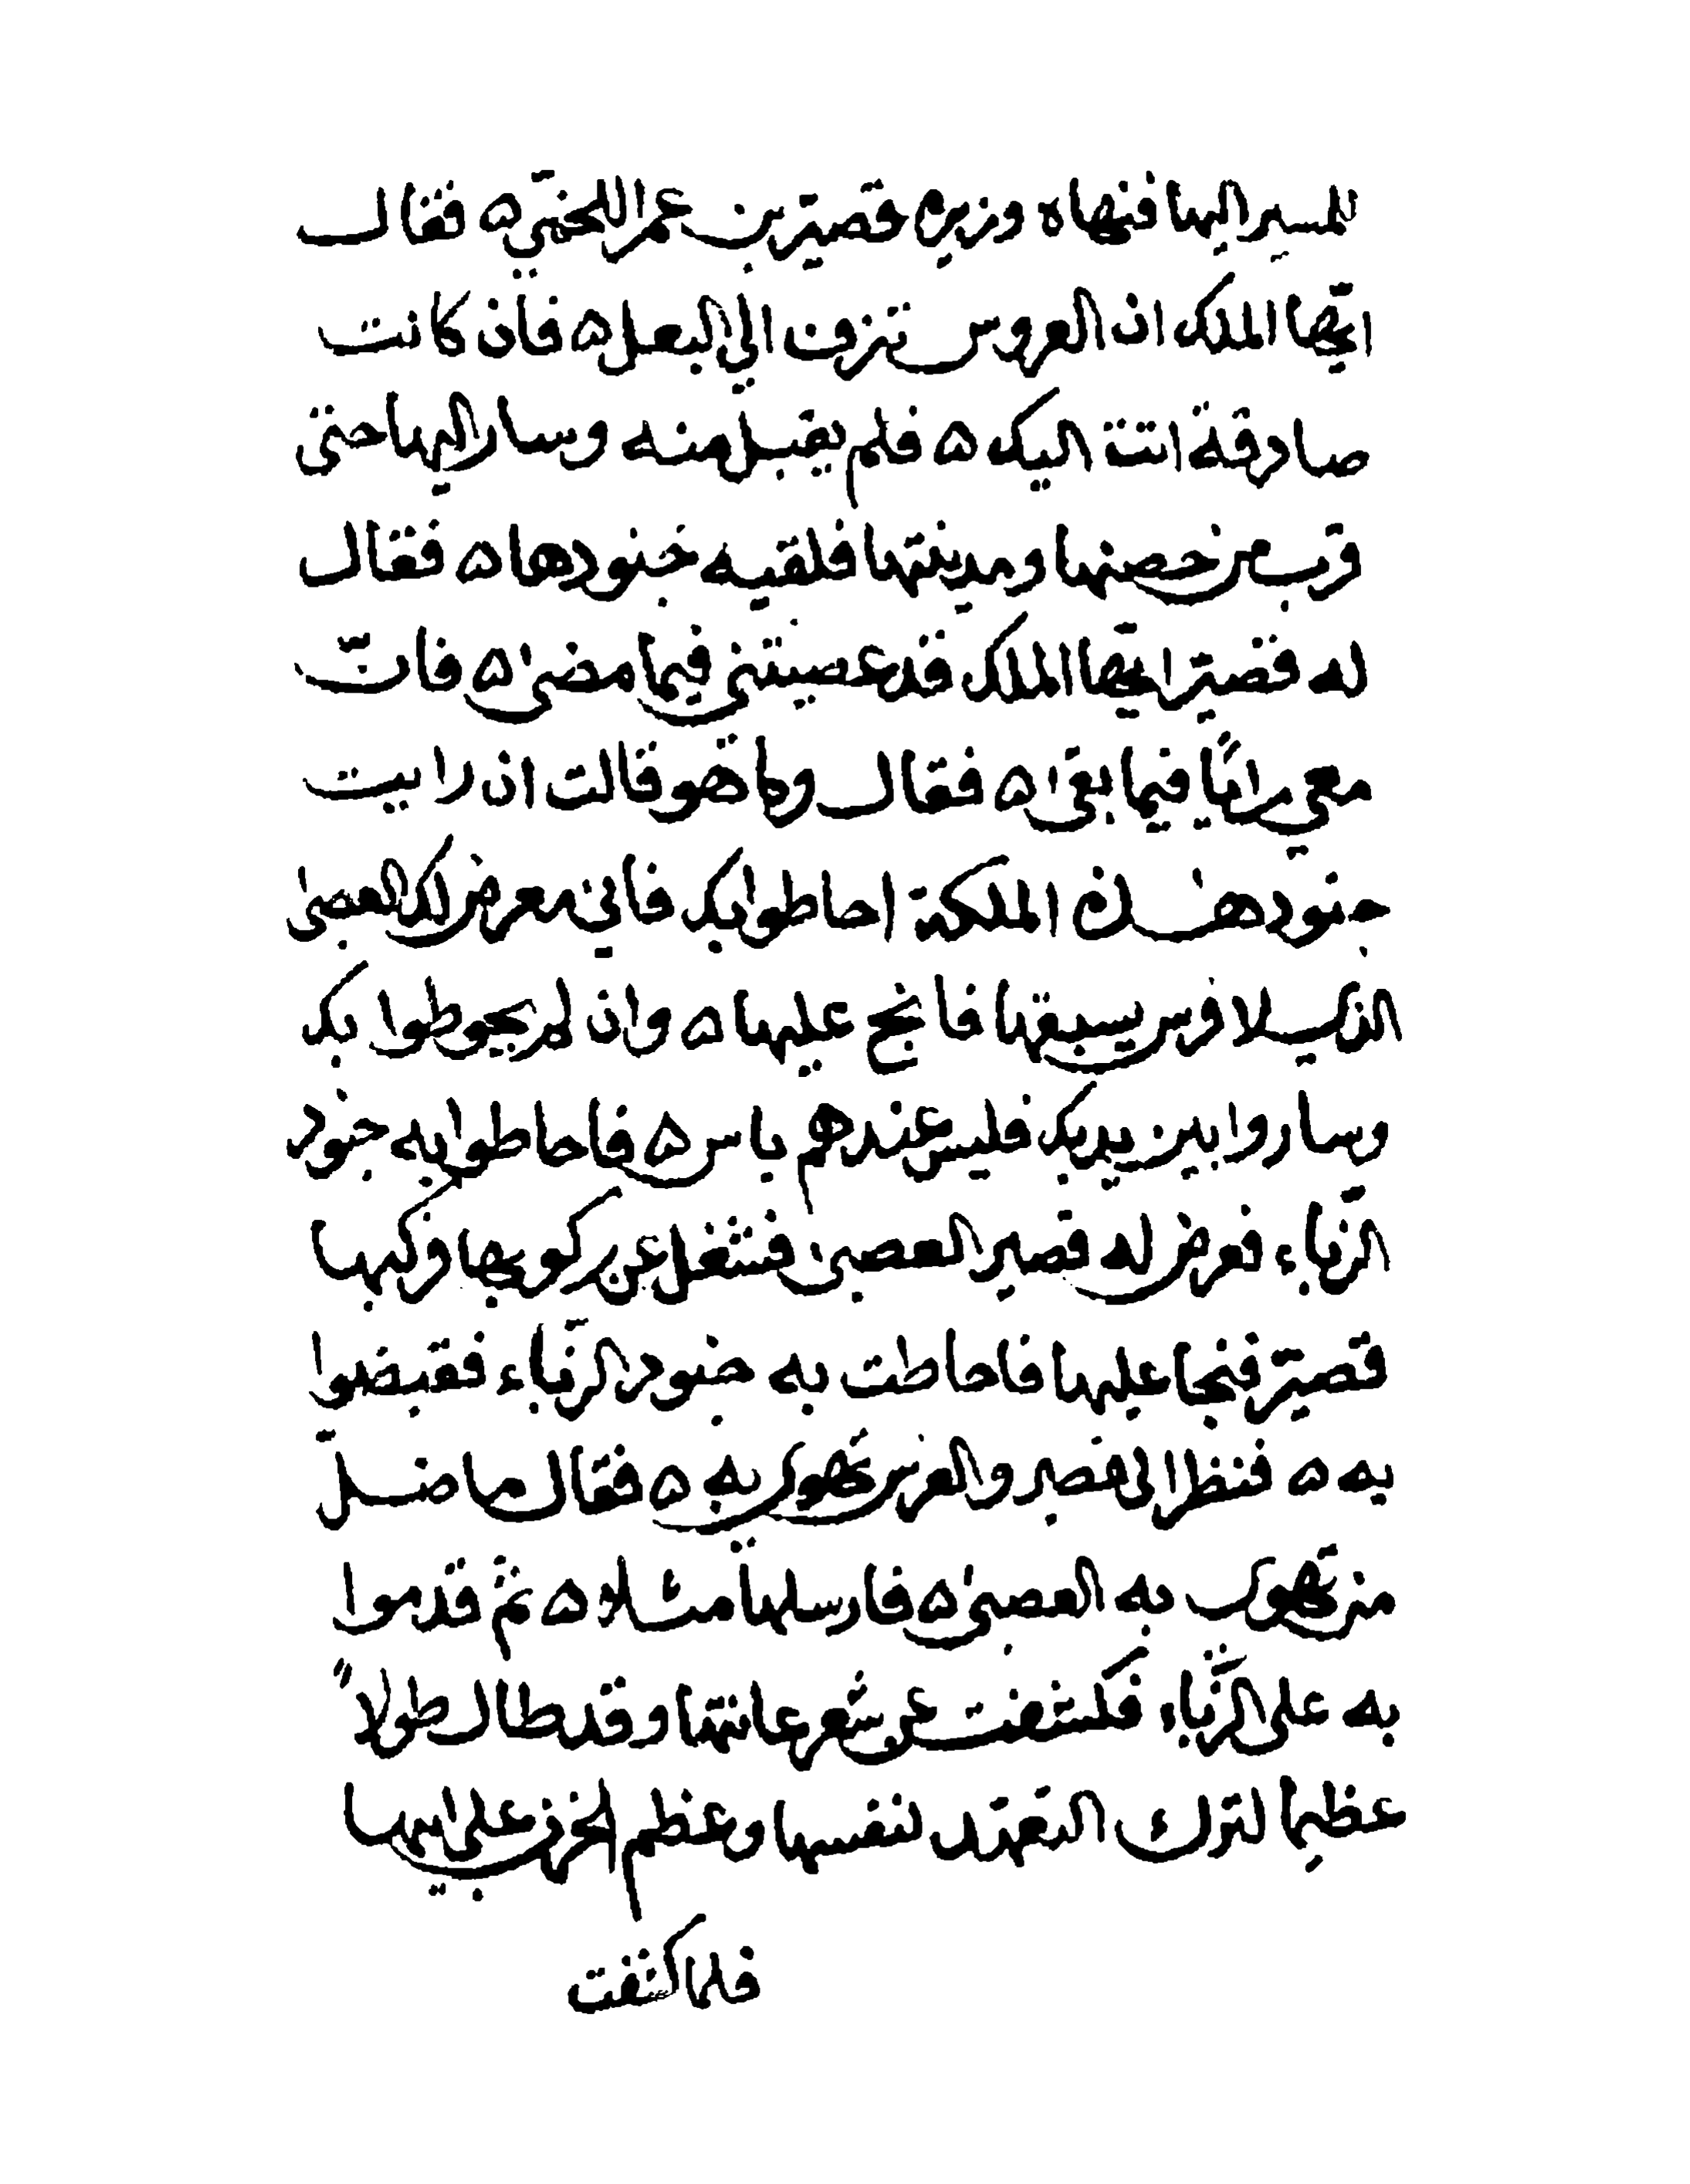 للمسير اليها فنهاه وزيره قصير بن عمر اللخمي ه فقال
ايها الملك ان العروس تزف الي البعل ه فان كانت
صادقة اتت اليك ه فلم يقبل منه وسار اليها حتى
قرب من حصنها ومدينتها فلقيه جنودها ه فقال
له قصير ايها الملك قد عصيتني فيما مضى ه فان
معي رايا فيما بقى ه فقال وما هو قالت ان رايت
جنود هذه الملكة احاطوا بك فاني معرض لك العصى
الذي لا فرس يسبقها فانج عليها ه وان لم يحوطوا بك
وساروا بين يديك فليس عندهم باس ه فاحاطوا به جنود
الزباء فعرض له قصير العصى فشغل عن ركوبها وركبها
قصير فنجا عليها فاحاطت به جنود الزباء فقبضوا
به ه فنظر الى قصير والفرس تهوي به ه فقال ما ضل
من تهوي به العصى ه فارسلها مثلا ه ثم قدموا
به على الزباء فكشفت عن شعر عانتها وقد طال طولاً
عظيما لترك التعهد لنفسها وعظم الحزن على ابيها
فلما كشفت